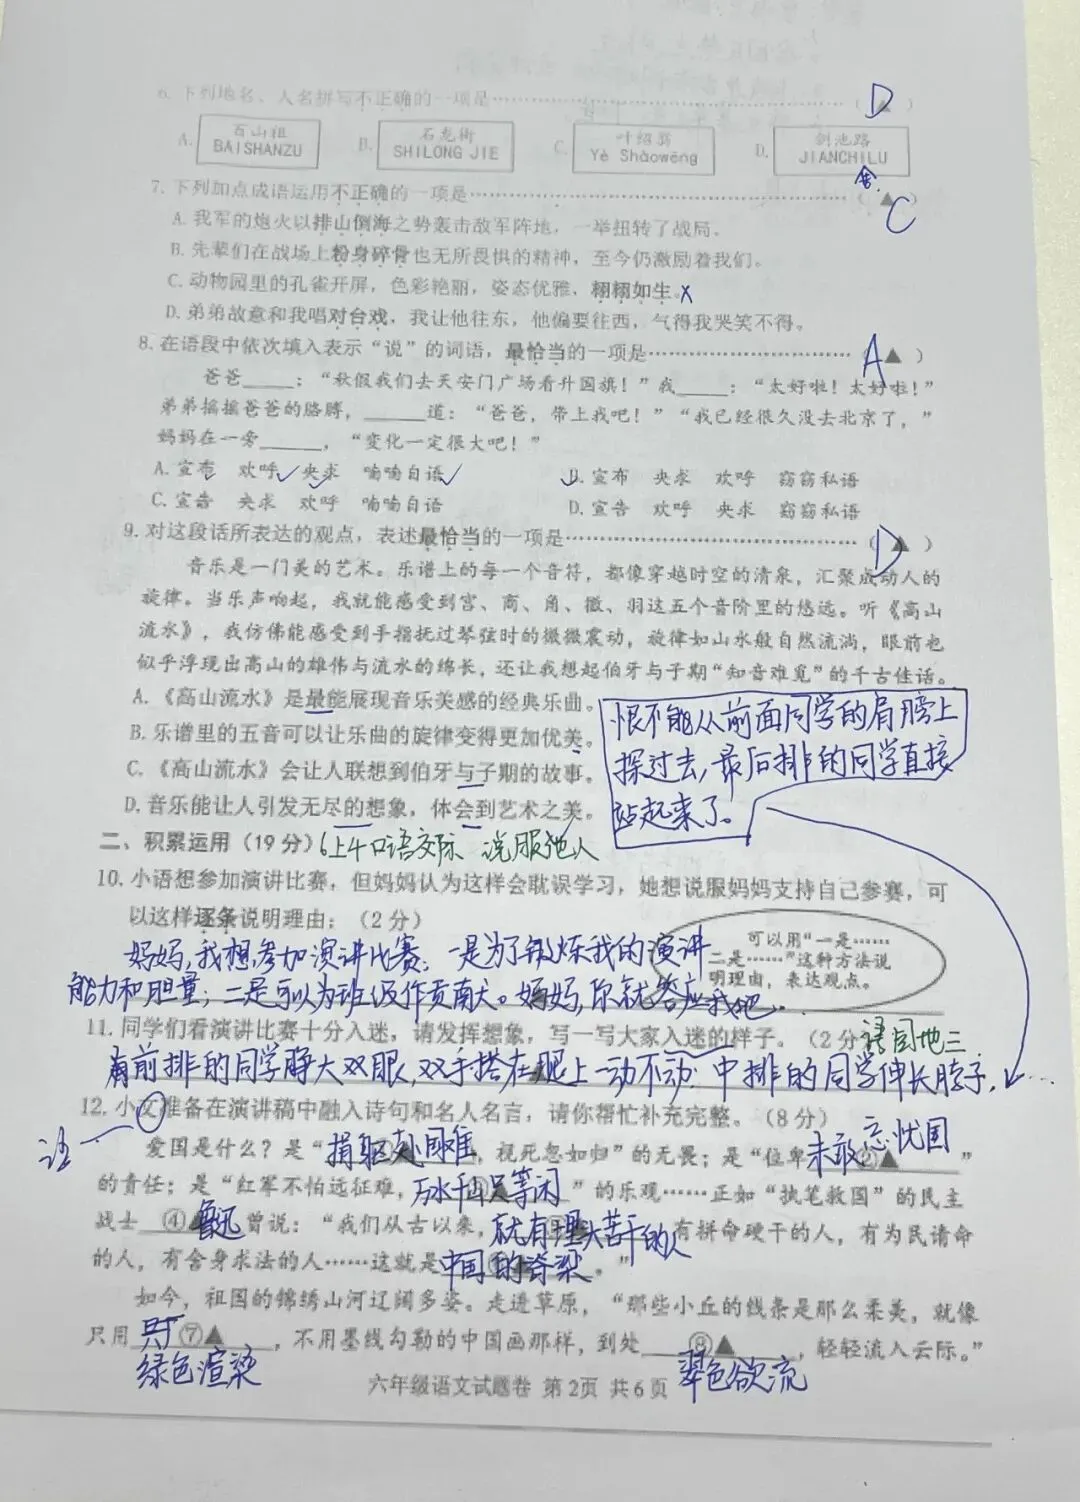 6. 下列地名、人名拼写不正确的一项是……（ D▲ ）
A. 百山祖 BAISHANZU B. 石龙街 SHILONG JIE C. 叶绍翁 Yè Shàowēng D. 剑池路 JIANCHILU
7. 下列加点成语运用不正确的一项是……（ ▲C ）
A. 我军的炮火以排山倒海之势轰击敌军阵地，一举扭转了战局。
B. 先辈们在战场上粉身碎骨也无所畏惧的精神，至今仍激励着我们。
C. 动物园里的孔雀开屏，色彩艳丽，姿态优雅，栩栩如生。x
D. 弟弟故意和我唱对台戏，我让他往东，他偏要往西，气得我哭笑不得。
8. 在语段中依次填入表示“说”的词语，最恰当的一项是……（ A▲ ）
爸爸____：“秋假我们去天安门广场看升国旗！”我____：“太好啦！太好啦！”
弟弟摇摇爸爸的胳膊，____道：“爸爸，带上我吧！”“我已经很久没去北京了，”
妈妈在一旁____，“变化一定很大吧！”
A. 宣布 欢呼 央求 喃喃自语 B. 宣布 央求 欢呼 窃窃私语
C. 宣告 央求 欢呼 喃喃自语 D. 宣告 欢呼 央求 窃窃私语
9. 对这段话所表达的观点，表述最恰当的一项是……（ D▲ ）
音乐是一门美的艺术。乐谱上的每一个音符，都像穿越时空的清泉，汇聚成动人的
旋律。当乐声响起，我就能感受到宫、商、角、徵、羽这五个音阶里的悠远。听《高山
流水》，我仿佛能感受到手指抚过琴弦时的微微震动，旋律如山水般自然流淌，眼前也
似乎浮现出高山的雄伟与流水的绵长，还让我想起伯牙与子期“知音难觅”的千古佳话。
A.《高山流水》是最能展现音乐美感的经典乐曲。
B. 乐谱里的五音可以让乐曲的旋律变得更加优美。
C.《高山流水》会让人联想到伯牙与子期的故事。
D. 音乐能让人引发无尽的想象，体会到艺术之美。
恨不能从前面同学的肩膀上
探过去，最后排的同学直接
站起来了。
二、积累运用（19 分）6上4口语交际 说服他人
10. 小语想参加演讲比赛，但妈妈认为这样会耽误学习，她想说服妈妈支持自己参赛，可
以这样逐条说明理由：（2 分）
可以用“一是……
二是……”这种方法说
明理由，表达观点。
妈妈，我想参加演讲比赛：一是为了锻炼我的演讲
能力和胆量；二是可以为班级作贡献。妈妈，你就答应我吧…
11. 同学们看演讲比赛十分入迷，请发挥想象，写一写大家入迷的样子。（2分 语园地三
前排的同学睁大双眼，双手搭在腿上一动不动；中排的同学伸长脖子，…
12. 小文准备在演讲稿中融入诗句和名人名言，请你帮忙补充完整。（8 分）
语
爱国是什么？是“捐躯赴国难，视死忽如归”的无畏；是“位卑未敢忘忧国②▲”
的责任；是“红军不怕远征难，万水千山只等闲▲”的乐观……正如“执笔救国”的民主
战士④鲁迅曾说：“我们从古以来，就有埋头苦干的人，有拼命硬干的人，有为民请命
的人，有舍身求法的人……这就是中国的脊梁。”
如今，祖国的锦绣山河辽阔多姿。走进草原，“那些小丘的线条是那么柔美，就像
只用⑦▲，不用墨线勾勒的中国画那样，到处⑧▲，轻轻流入云际。”
绿色渲染
翠色欲流
六年级语文试题卷 第2页 共6页